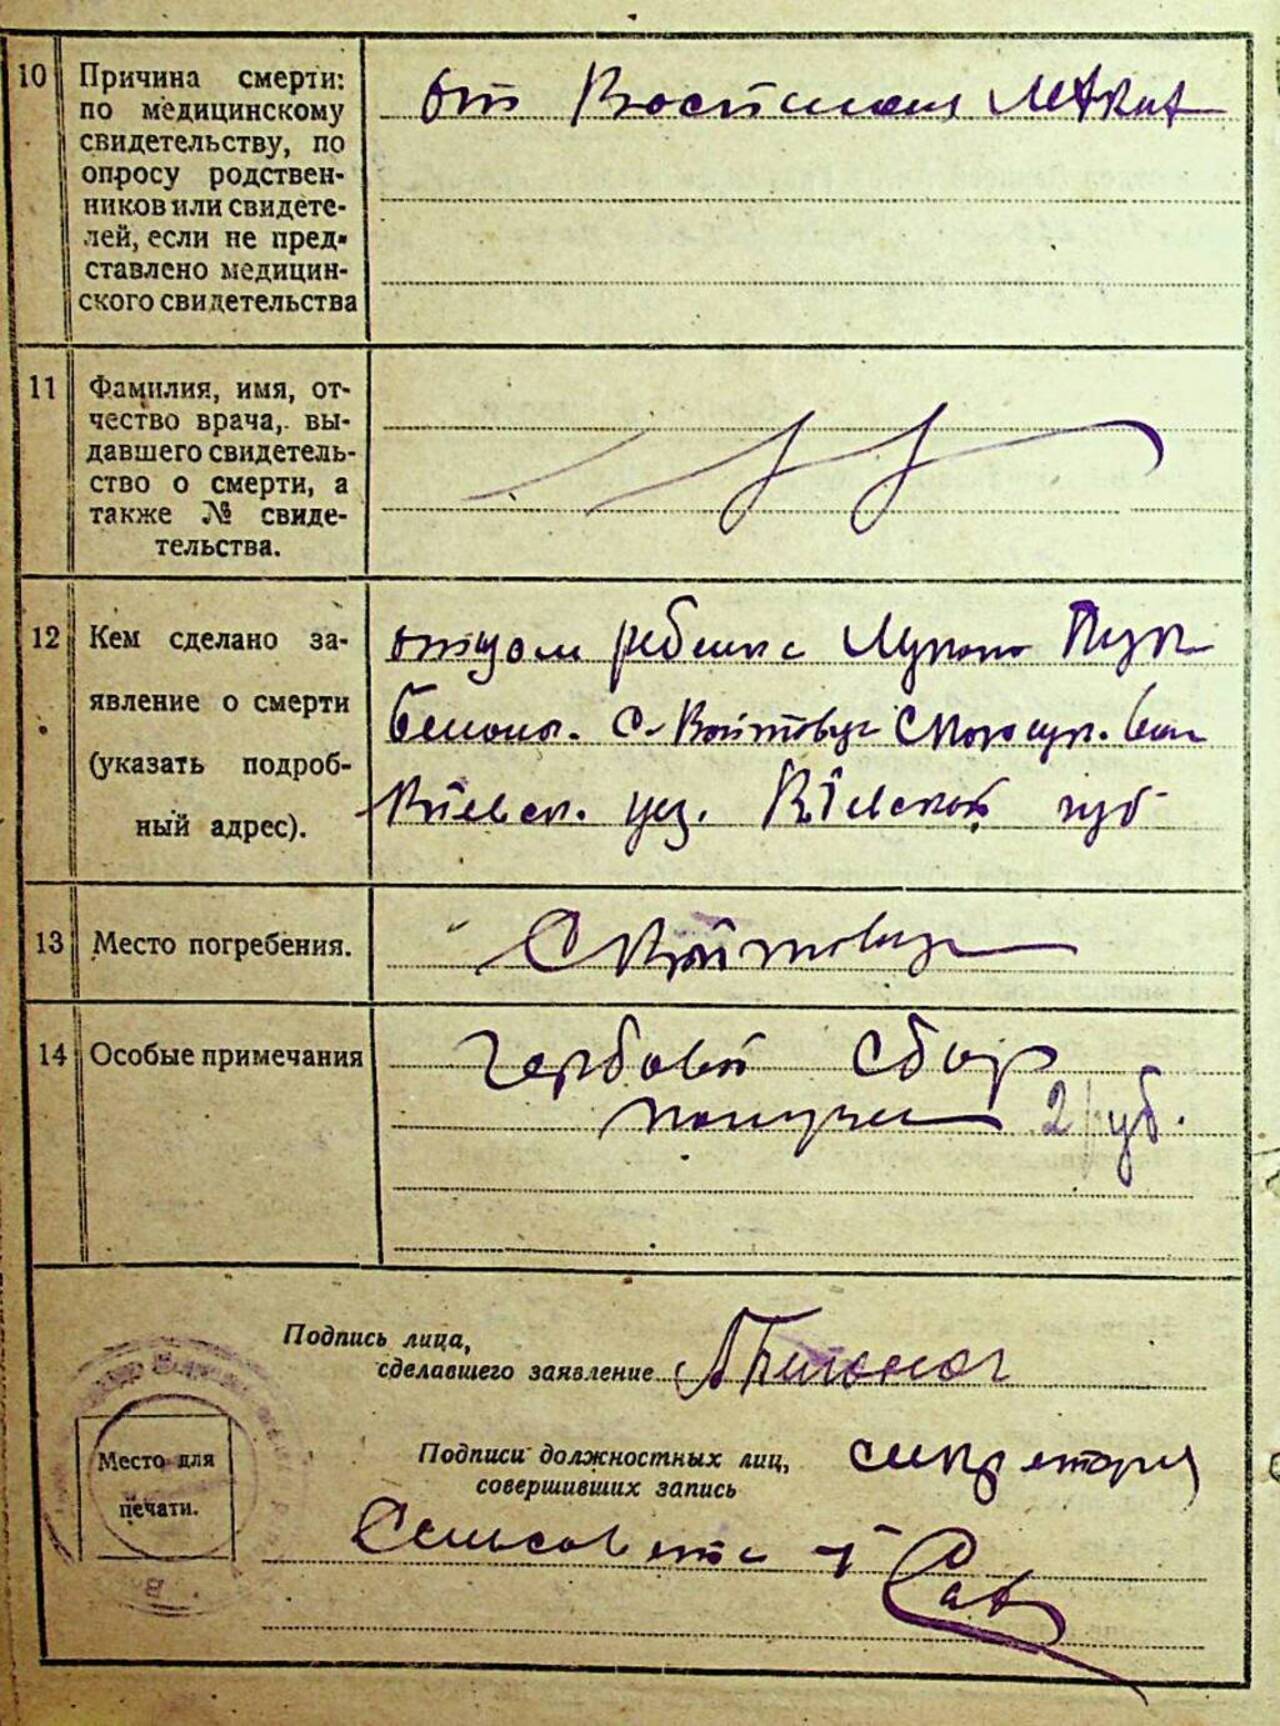 10 Причина смерти:
по медицинскому
свидетельству, по
опросу родствен-
ников или свидете-
лей, если не пред-
ставлено медицин-
ского свидетельства
от
11 Фамилия, имя, от-
чество врача, вы-
давшего свидетель-
ство о смерти, а
также № свиде-
тельства.
12 Кем сделано за-
явление о смерти
(указать подроб-
ный адрес).
отцом ребенка
с. Войтовцы
уез. губ
13 Место погребения.
С Войтовцы
14 Особые примечания
Гербовой сбор
получен 2 руб.
Подпись лица,
сделавшего заявление
Подписи должностных лиц,
совершивших запись
секретаря
Сельсовета
Место для
печати.